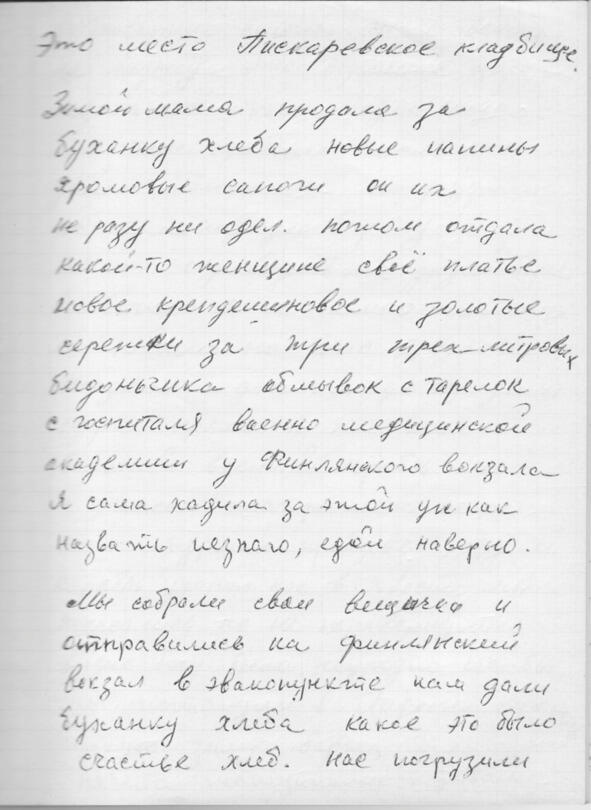 Это место Пискаревское кладбище.
Зимой мама продала за
буханку хлеба новые папины
хромовые сапоги он их
не разу ни одел. потом отдала
какой-то женщине своё платье
новое крепдешиновое и золотые
сережки за три трех-литровых
бидончика обмывок с тарелок
с госпиталя военно медицинской
академии у Финлянского вокзала
Я сама хадила за этой уж как
назвать незнаю, едой наверно.
Мы собрали свои вещички и
отправились на финлянский
вокзал в эвакопункте нам дали
буханку хлеба какое это было
счастье хлеб. нас погрузили